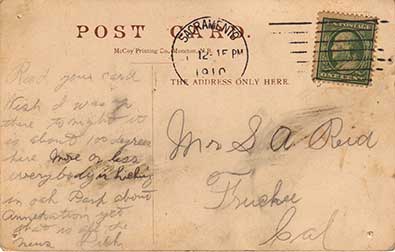 POST CARD.
McCoy Printing Co., Moncton, N.B.
SACRAMENTO
12-15 PM
1910
THE ADDRESS ONLY HERE.
Recd your card
Wish I was up
there tonight it
is about 100 degrees
here more or less
everybody is kicking
in oak Park about
annexation yet
that is all the
news
Mrs S A Reid
Truckee
Cal